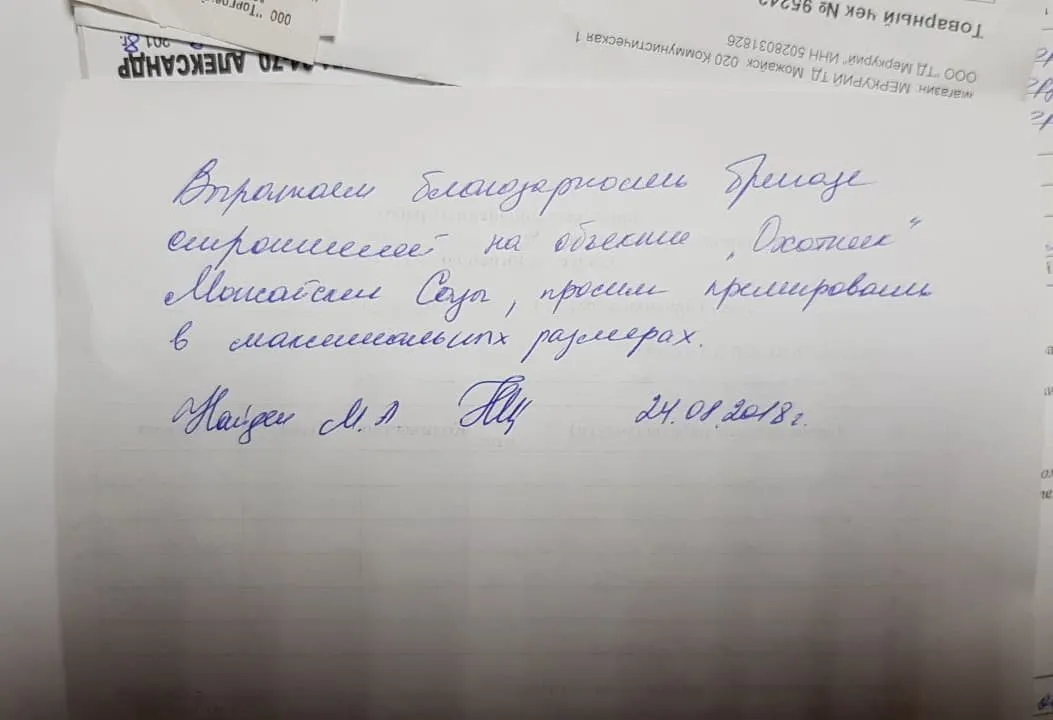 ООО "Торгов
201 8г.
70 АЛЕКСАНДР
Товарный чек № 9524
ООО "ТД Меркурий" ИНН 5028031826
магазин: МЕРКУРИЙ ТД Можайск 020 Коммунистическая 1
Выражаем благодарность бригаде
строителей на объекте „Охотник"
Можайские Сады, просим премировать
в максимальных размерах.
Найден М.А. 24.08.2018г.